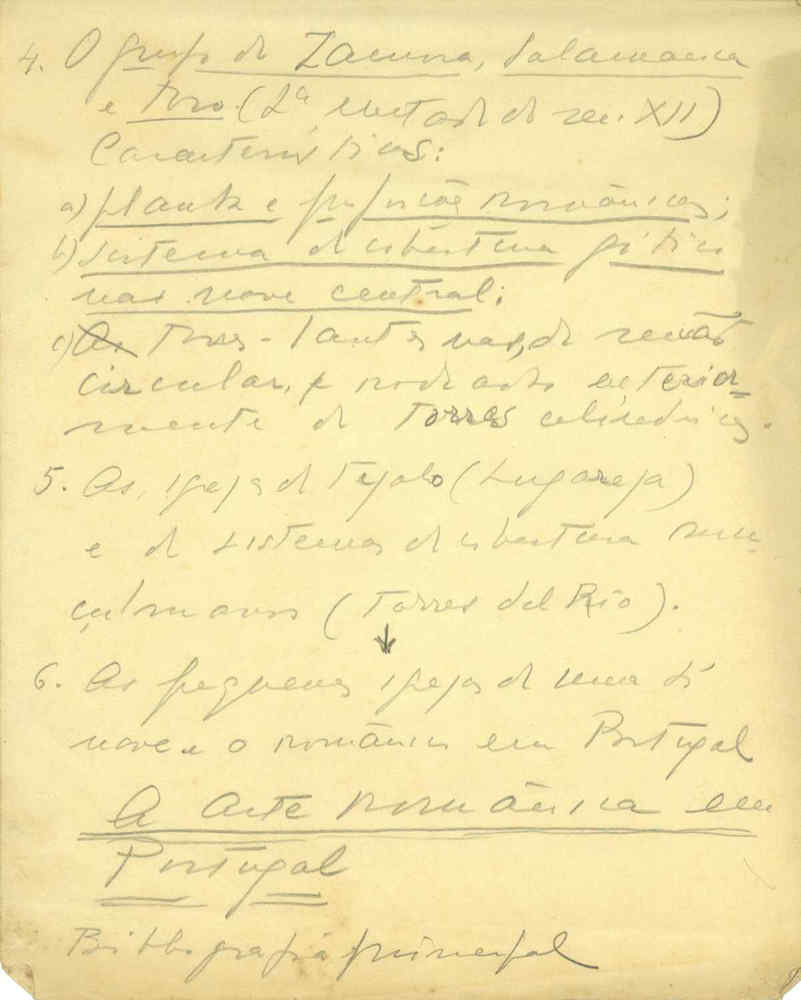 4. O grupo de Zamora, Salamanca
e Toro (2ª metade do sec. XII)
Características:
a) planta e proporções românicas;
b) sistema de cobertura gótico
nas nave central;
c) Torres-lanternas, de secção
circular, e rodeado exterior-
mente de torres cilíndricas.
5. As igrejas de tijolo (Lugareja)
e de sistemas de cobertura mu-
çulmanos (Torres del Rio).
6. As pequenas igrejas de uma só
nave e o românico em Portugal
A arte românica em
Portugal
Bibliografia principal